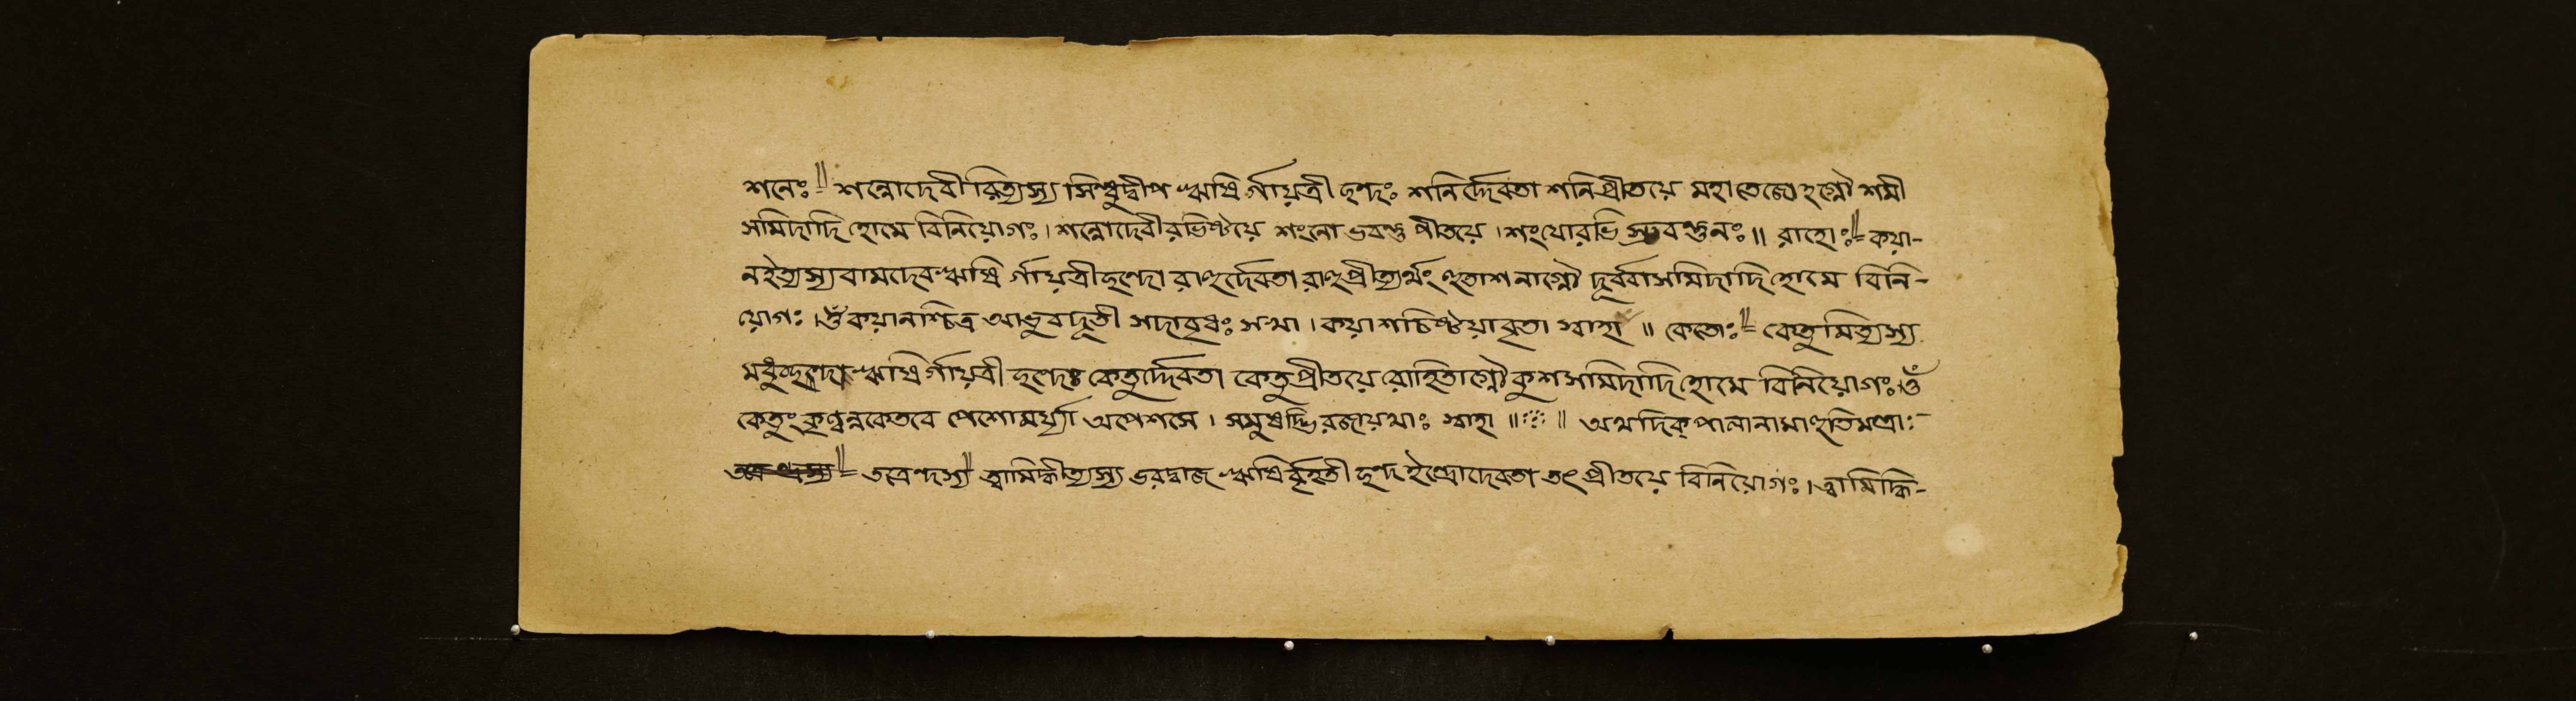 শনেঃ॥ শন্নোদেবীরিত্যস্য সিন্ধুদ্বীপ ঋষির্গায়ত্রী ছন্দঃ শনির্দ্দেবতা শনিপ্রীতয়ে মহাতেজোহগ্নৌ শমী
সমিদাদি হোমে বিনিয়োগঃ। শন্নোদেবীরভিষ্টয়ে শংনো ভবন্তু পীতয়ে। শংযোরভি স্রবন্তুনঃ॥ রাহোঃ॥ কয়া-
নইত্যস্য বামদেব ঋষির্গায়ত্রীছন্দো রাহুর্দেবতা রাহুপ্রীত্যর্থং হুতাশনাগ্নৌ দূর্ব্বাসমিদাদি হোমে বিনি-
য়োগঃ।ওঁ কয়ানশ্চিত্র আভুবদূতী সদাবৃধঃ সখা। কয়া শচিষ্টয়াবৃতা স্বাহা॥ কেতোঃ॥ কেতুমিত্যস্য
মধুচ্ছন্দা ঋষির্গায়ত্রী ছন্দঃ কেতুর্দ্দেবতা কেতুপ্রীতয়ে রোহিতাগ্নৌ কুশসমিদাদি হোমে বিনিয়োগঃ।ওঁ
কেতুং কৃণ্বন্নকেতবে পেশোমর্য্যা অপেশসে। সমুষদ্ভিরজায়থাঃ স্বাহা॥ ॥ অথদিক্‌পালানামাহুতিমন্ত্রাঃ
তত্রেন্দ্রস্য॥ ত্বামিদ্ধীত্যস্য ভরদ্বাজ ঋষির্বৃহতী ছন্দ ইন্দ্রোদেবতা তৎ প্রীতয়ে বিনিয়োগঃ। ত্বামিদ্ধি-